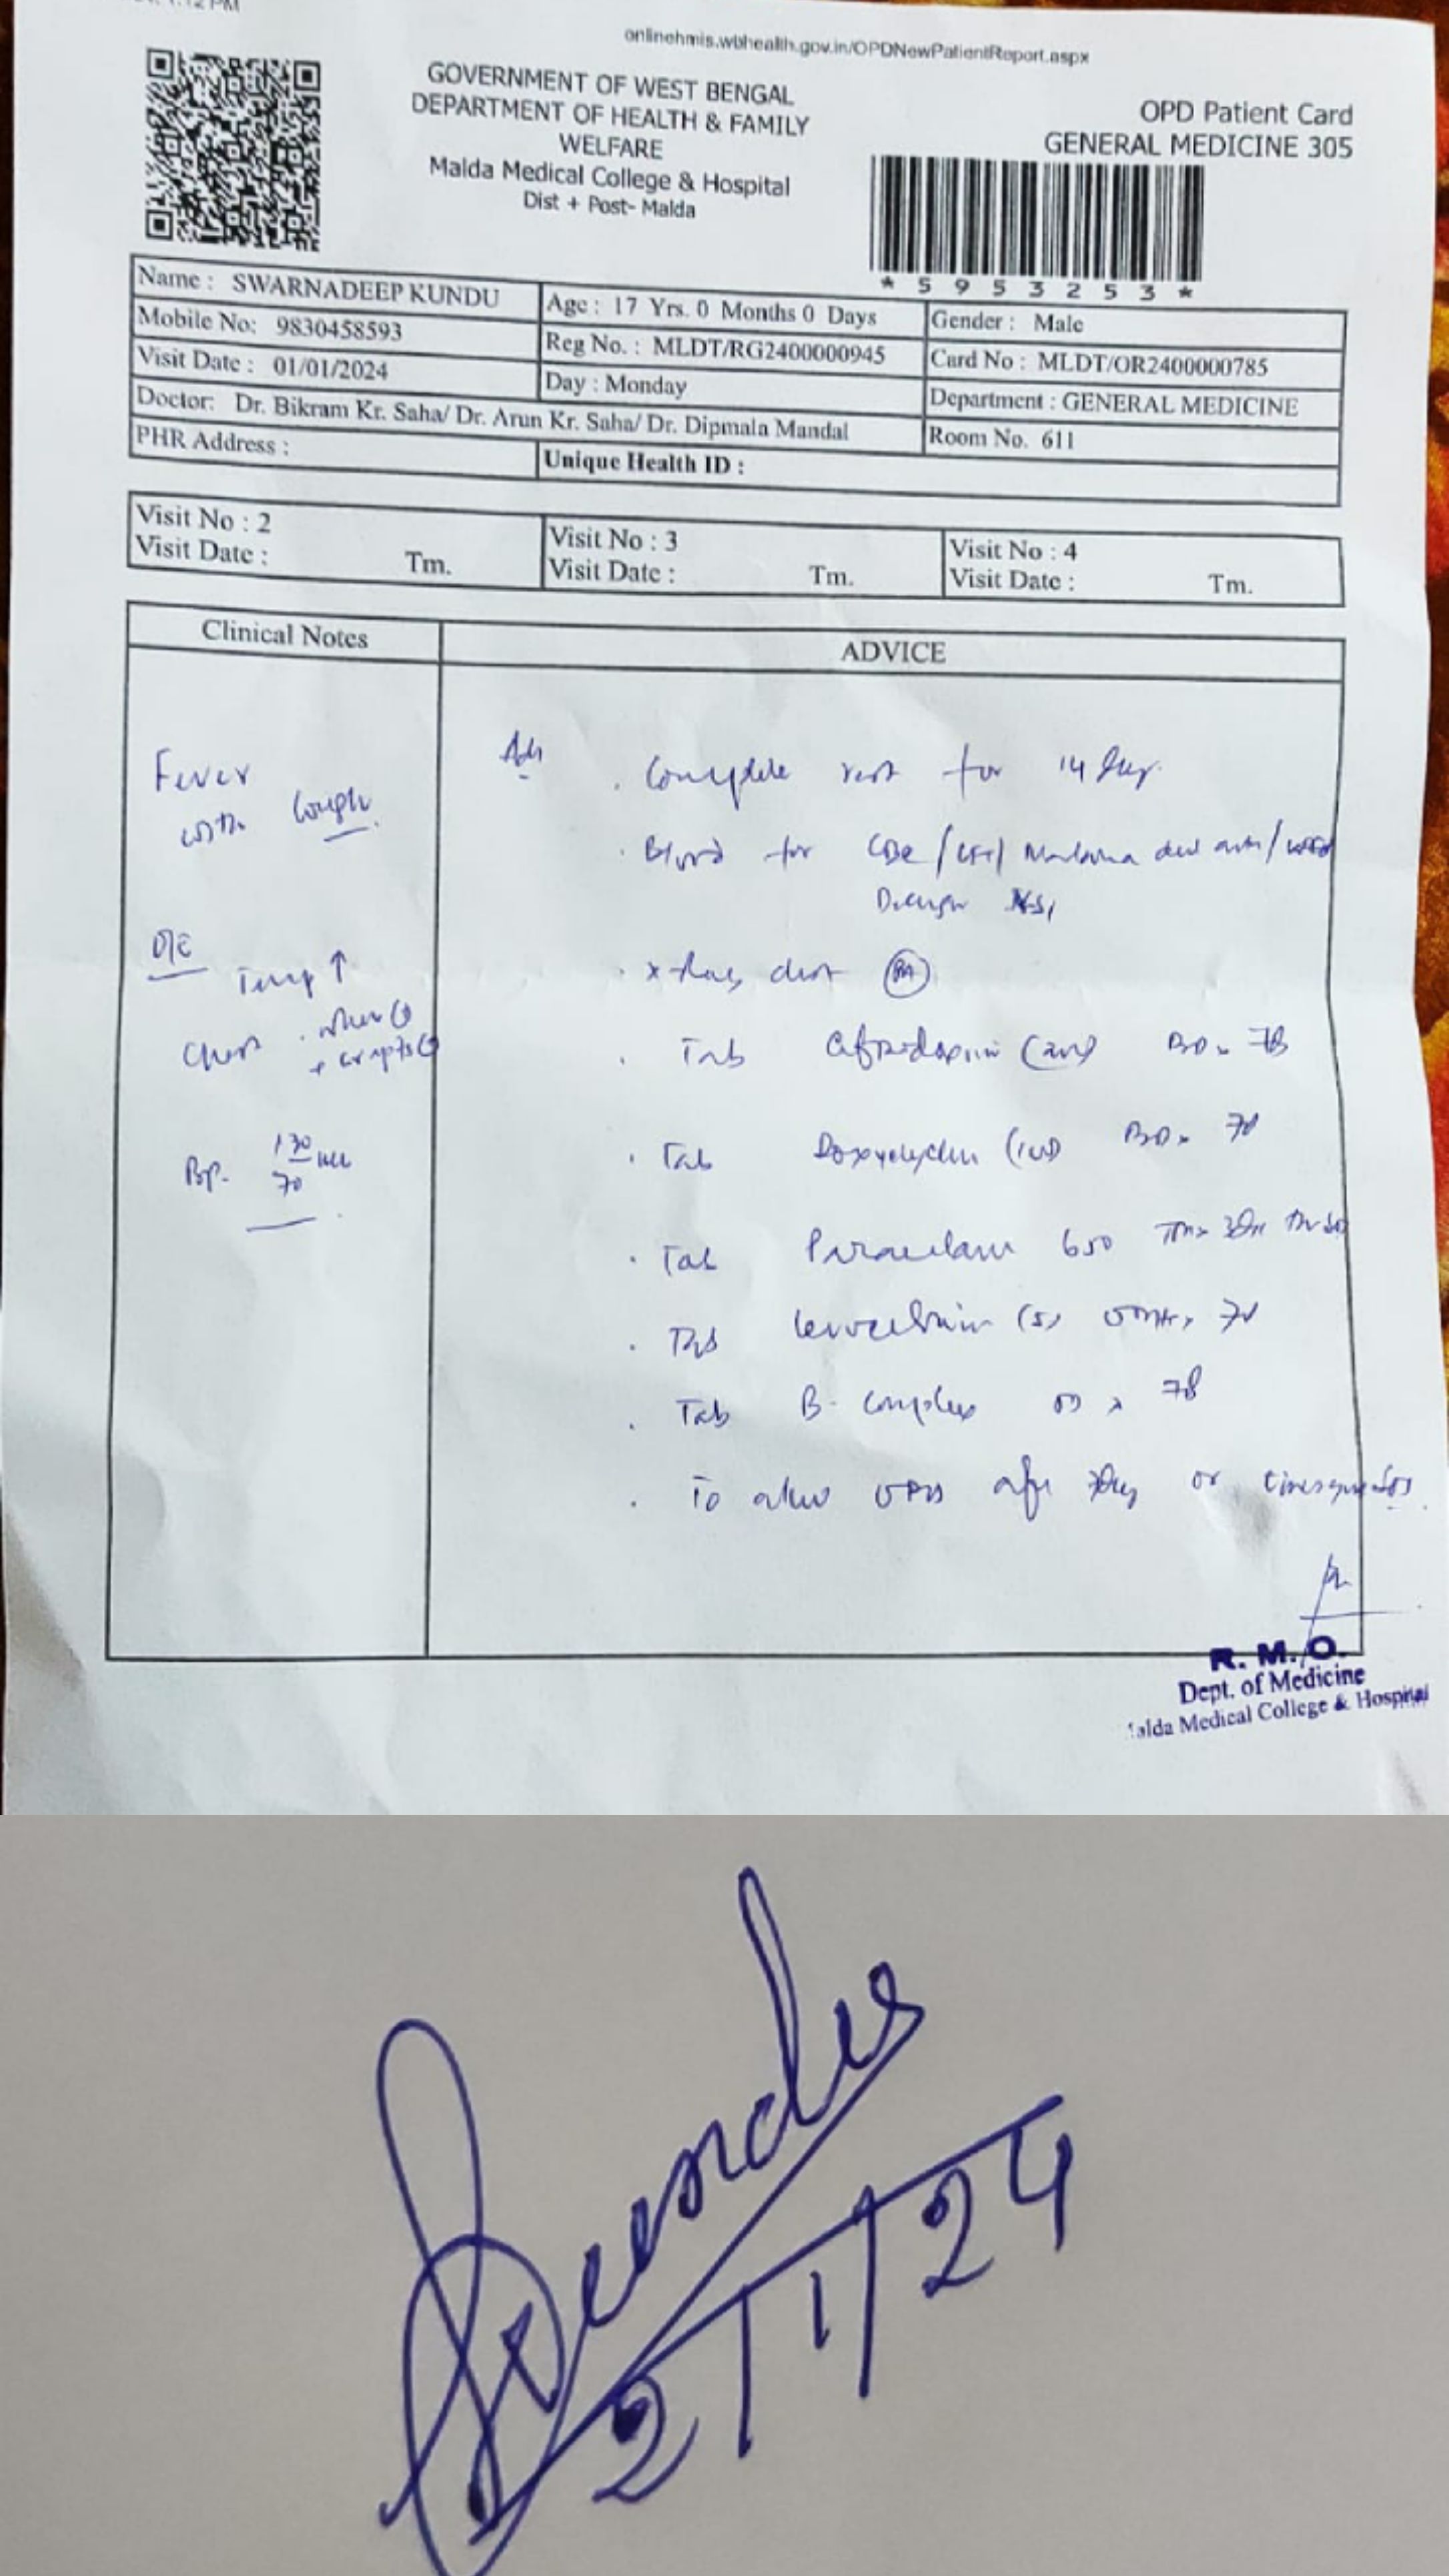 onlinehmis.wbhealth.gov.in/OPDNewPatientReport.aspx
GOVERNMENT OF WEST BENGAL
DEPARTMENT OF HEALTH & FAMILY
WELFARE
Malda Medical College & Hospital
Dist + Post- Malda
OPD Patient Card
GENERAL MEDICINE 305
* 5 9 5 3 2 5 3 *
Name : SWARNADEEP KUNDU
Age : 17 Yrs. 0 Months 0 Days
Gender : Male
Mobile No: 9830458593
Reg No. : MLDT/RG2400000945
Card No : MLDT/OR2400000785
Visit Date : 01/01/2024
Day : Monday
Department : GENERAL MEDICINE
Doctor: Dr. Bikram Kr. Saha/ Dr. Arun Kr. Saha/ Dr. Dipmala Mandal
Room No. 611
PHR Address :
Unique Health ID :
Visit No : 2
Visit Date : Tm.
Visit No : 3
Visit Date : Tm.
Visit No : 4
Visit Date : Tm.
Clinical Notes
ADVICE
Fever
with Cough
O/E
Temp ↑
Chest
BP. 130/70
Complete rest for 14 days
Blood for
X-Ray chest (PA)
Tab BD x 7d
Tab Doxycyclin (100) BD x 7d
Tab Paracetam 650
Tab levocetrizin (5) x 7d
Tab B-Complex OD x 7d
To attend OPD after or
R. M. O.
Dept. of Medicine
alda Medical College & Hospital
2/1/24